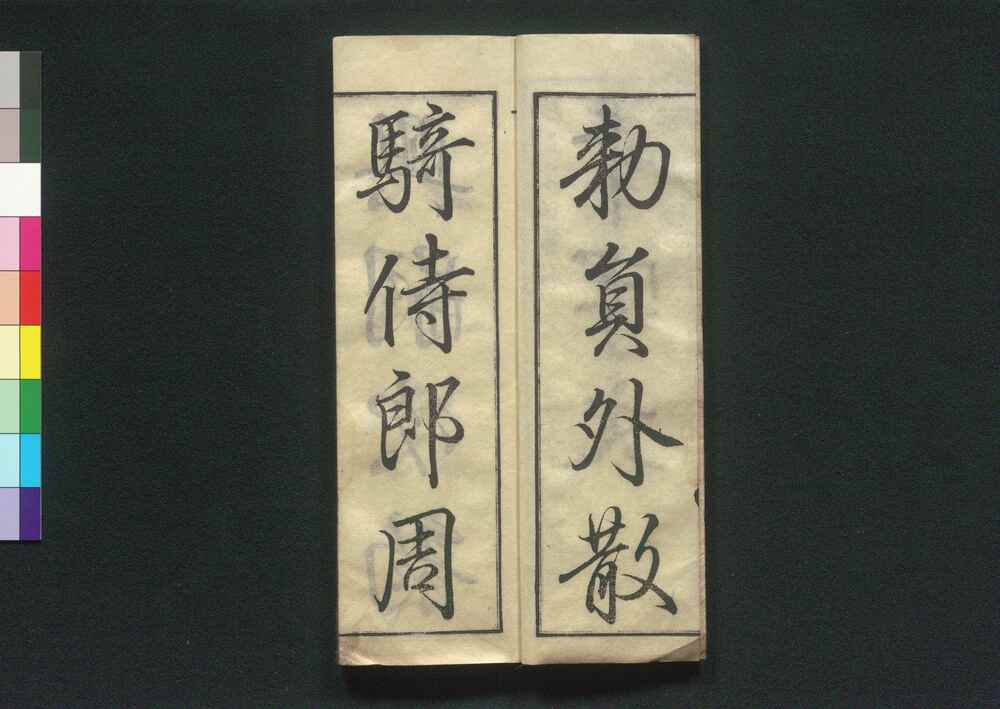 勅負外散
騎侍郎周